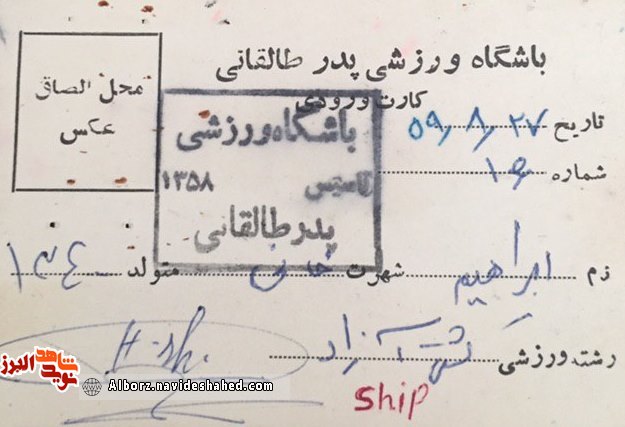 باشگاه ورزشی پدر طالقانی
کارت ورودی
محل الصاق
عکس
تاریخ ۵۹/۸/۲۷
شماره
باشگاه ورزشی
تاسیس ۱۳۵۸
پدر طالقانی
نام ابراهیم شهرت خانی متولد ۱۳۴۰
رشته ورزشی کشتی آزاد
H-sh.
ship
شاهد نوید البرز
Alborz.navideshahed.com